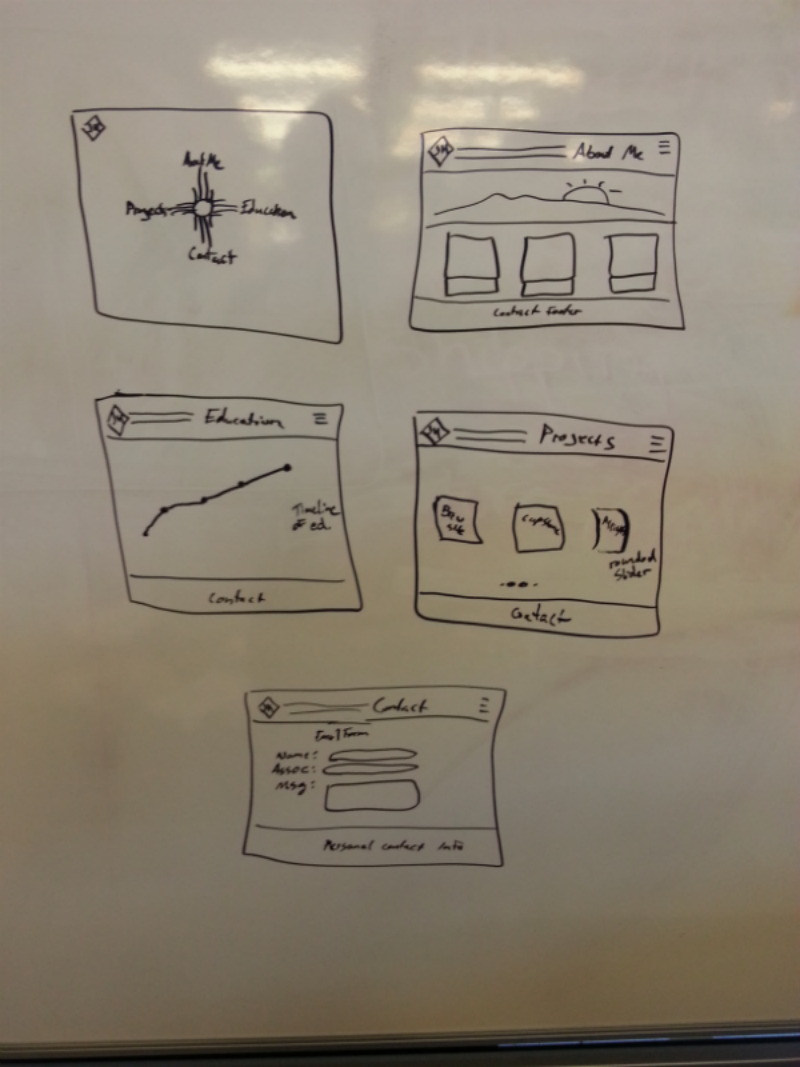 About Me
Projects
Education
Contact
About Me
Contact Footer
Education
Timeline
of ed.
Contact
Projects
rounded
Slider
Contact
Contact
Email Form
Name:
Assoc:
Msg:
Personal contact info